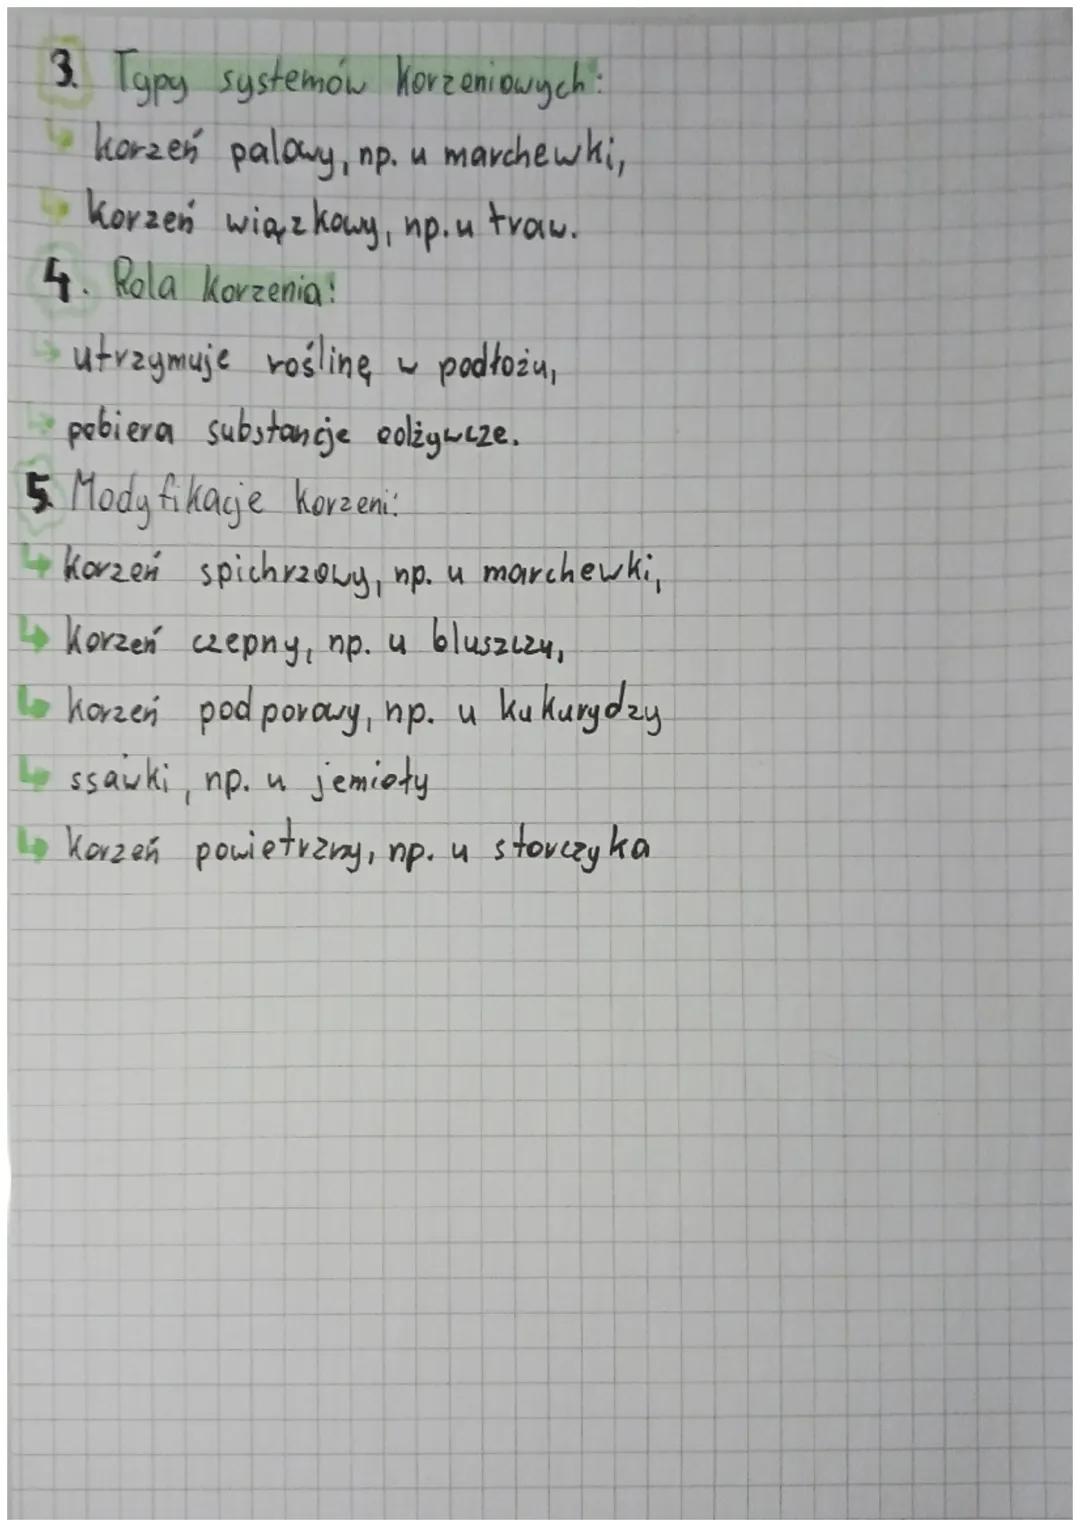 3. Typy systemów korzeniowych:
↳ korzeń palowy, np. u marchewki,
↳ korzeń wiązkowy, np. u traw.
4. Rola korzenia:
→ utrzymuje roślinę w podłożu,
→ pobiera substancje odżywcze.
5. Modyfikacje korzeni:
↳ korzeń spichrzowy, np. u marchewki,
↳ korzeń czepny, np. u bluszczu,
↳ korzeń podporowy, np. u kukurydzy
↳ ssawki, np. u jemioły
↳ korzeń powietrzny, np. u storczyka